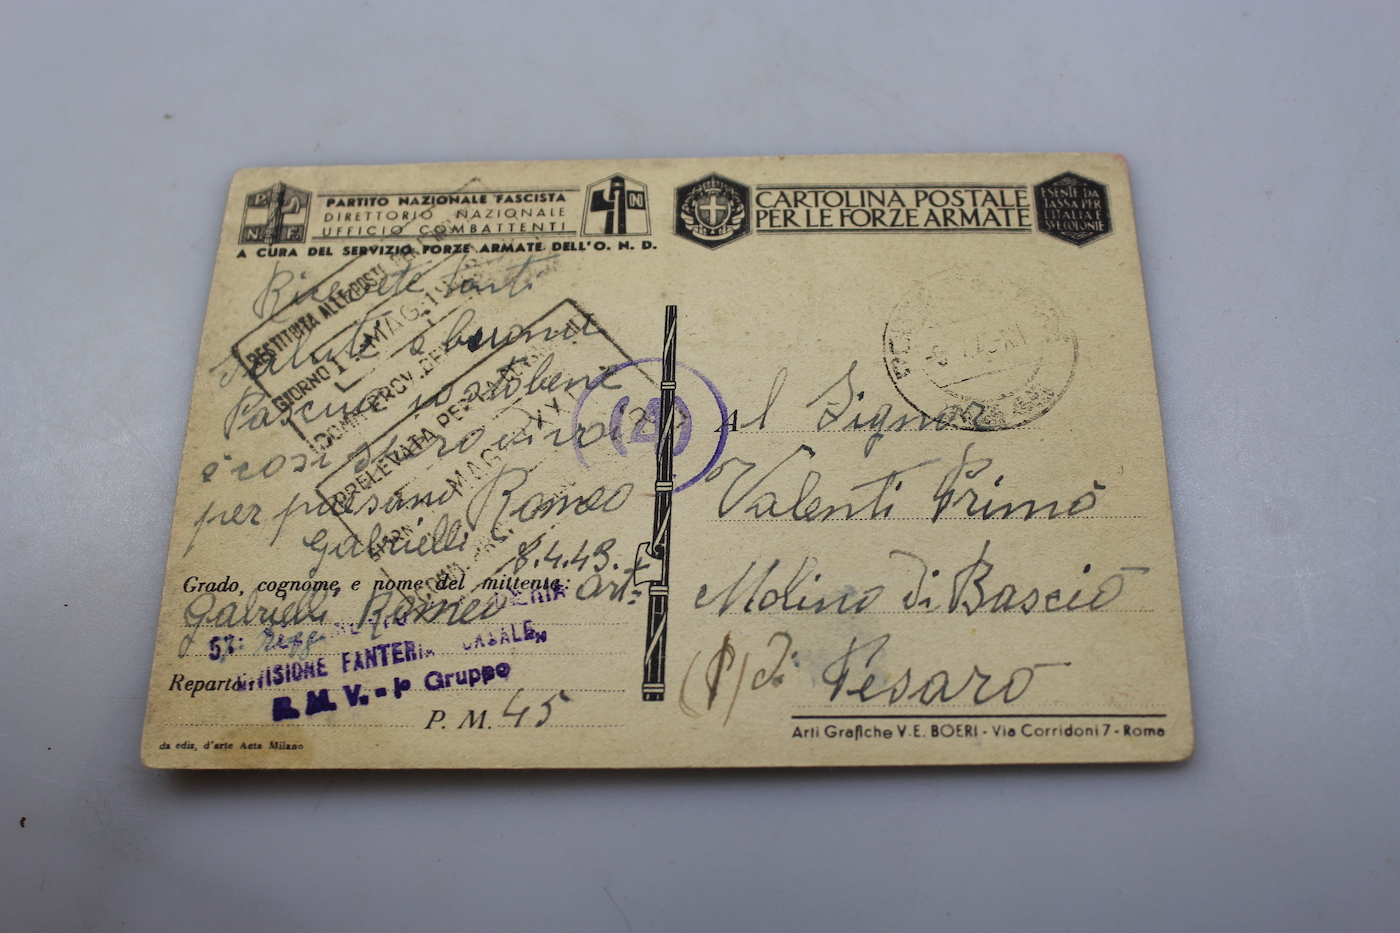 P. N. N. F.
PARTITO NAZIONALE FASCISTA
DIRETTORIO NAZIONALE
UFFICIO COMBATTENTI
A CURA DEL SERVIZIO FORZE ARMATE DELL'O. N. D.
CARTOLINA POSTALE
PER LE FORZE ARMATE
ESENTE DA
TASSA PER
L'ITALIA E
SUE COLONIE
Ricevete tanti
salute e buona
Pascua io sto bene
e cosi spero di voi
per paesano Romeo
Gabrielli
8.4.43.
RESTITUITA ALLE POSTE
GIORNO MAG. 19
COMM. PROV.
PRELEVATA PER LA
MAG. XXI
(A)
Al Signor
Valenti Primo
Molino di Bascio
(P) di Pesaro
Grado, cognome e nome del mittente: art
Gabrielli Romeo
DIVISIONE FANTERIA CASALE
Reparto
R. M. V. - I° Gruppo
P. M. 45
da ediz. d'arte Acta Milano
Arti Grafiche V. E. BOERI - Via Corridoni 7 - Roma